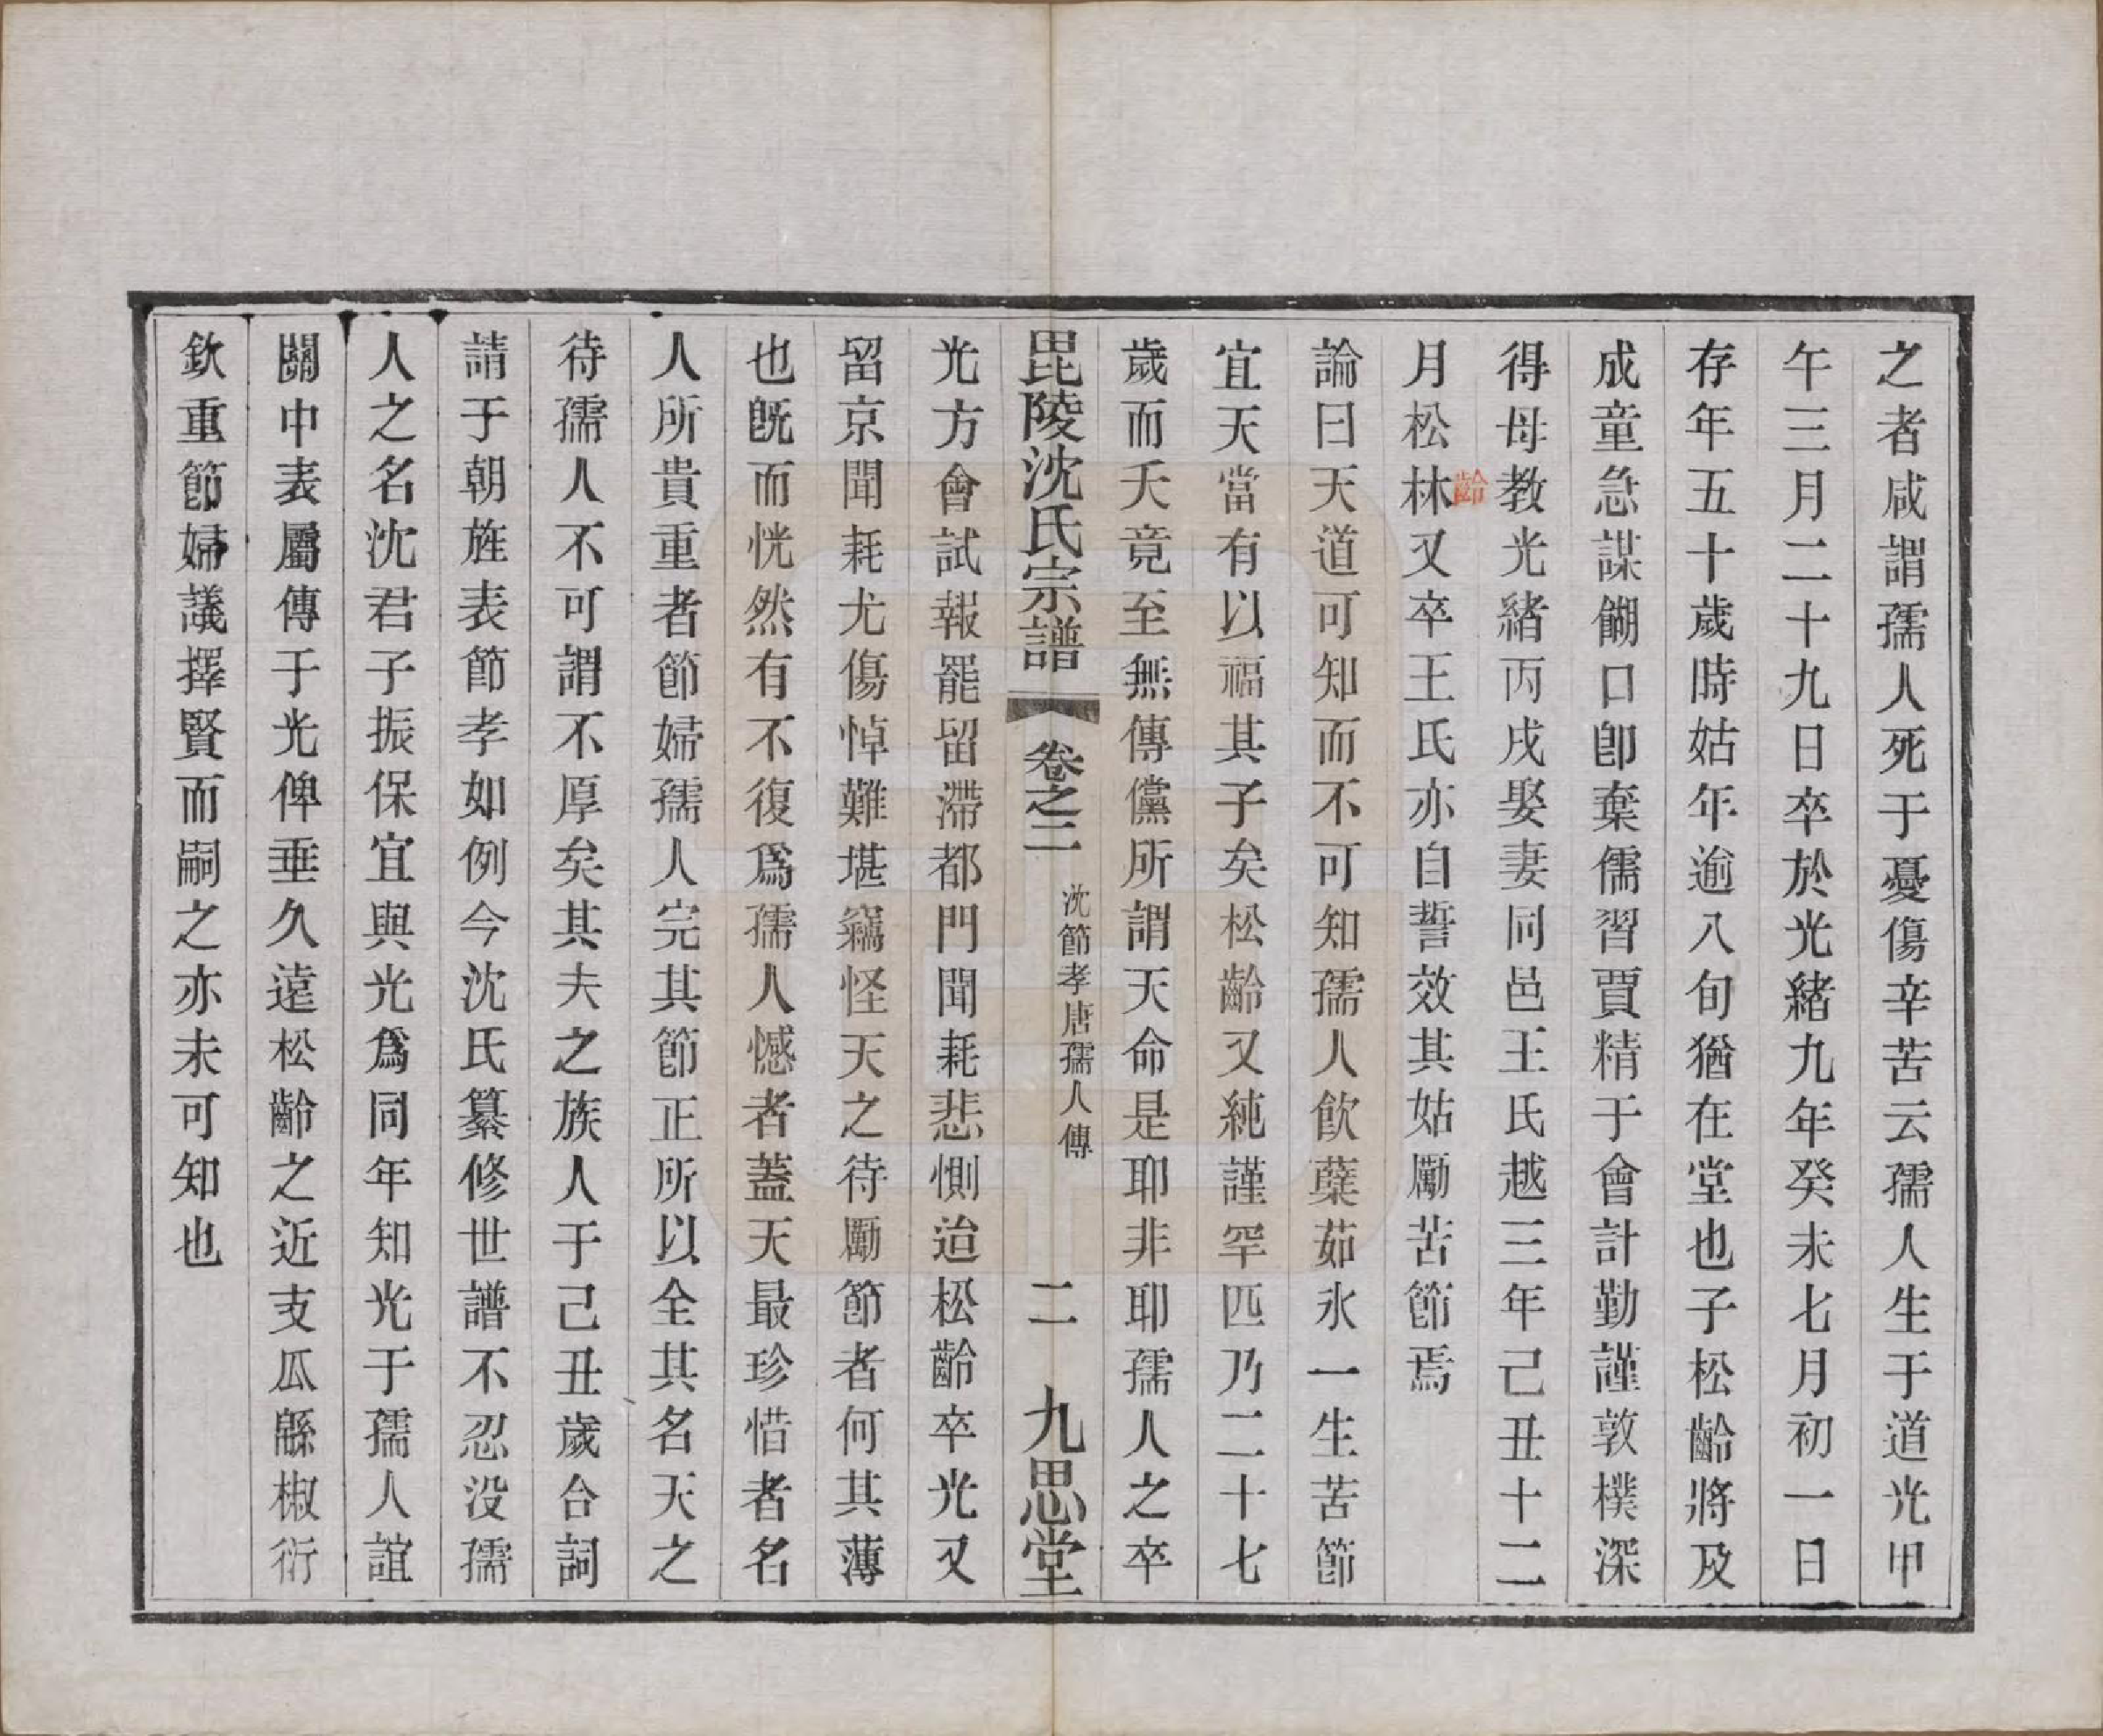 之者咸謂孺人死于憂傷辛苦云孺人生于道光甲
午三月二十九日卒於光緒九年癸未七月初一日
存年五十歲時姑年逾八旬猶在堂也子松齡將及
成童急謀餬口卽棄儒習賈精于會計勤謹敦樸深
得母教光緒丙戌娶妻同邑王氏越三年己丑十二
月松林又卒王氏亦自誓效其姑勵苦節焉
齡
論曰天道可知而不可知孺人飲蘗茹氷一生苦節
宜天當有以福其子矣松齡又純謹罕匹乃二十七
歲而夭竟至無傳儻所謂天命是耶非耶孺人之卒
毘陵沈氏宗譜 卷之二 沈節孝唐孺人傳 二 九思堂
光方會試報罷留滯都門聞耗悲惻迨松齡卒光又
留京聞耗尤傷悼難堪竊怪天之待勵節者何其薄
也旣而恍然有不復爲孺人憾者蓋天最珍惜者名
人所貴重者節婦孺人完其節正所以全其名天之
待孺人不可謂不厚矣其夫之族人于己丑歲合詞
請于朝旌表節孝如例今沈氏纂修世譜不忍没孺
人之名沈君子振保宜與光爲同年知光于孺人誼
關中表屬傳于光俾垂久遠松齡之近支瓜緜椒衍
欽重節婦議擇賢而嗣之亦未可知也